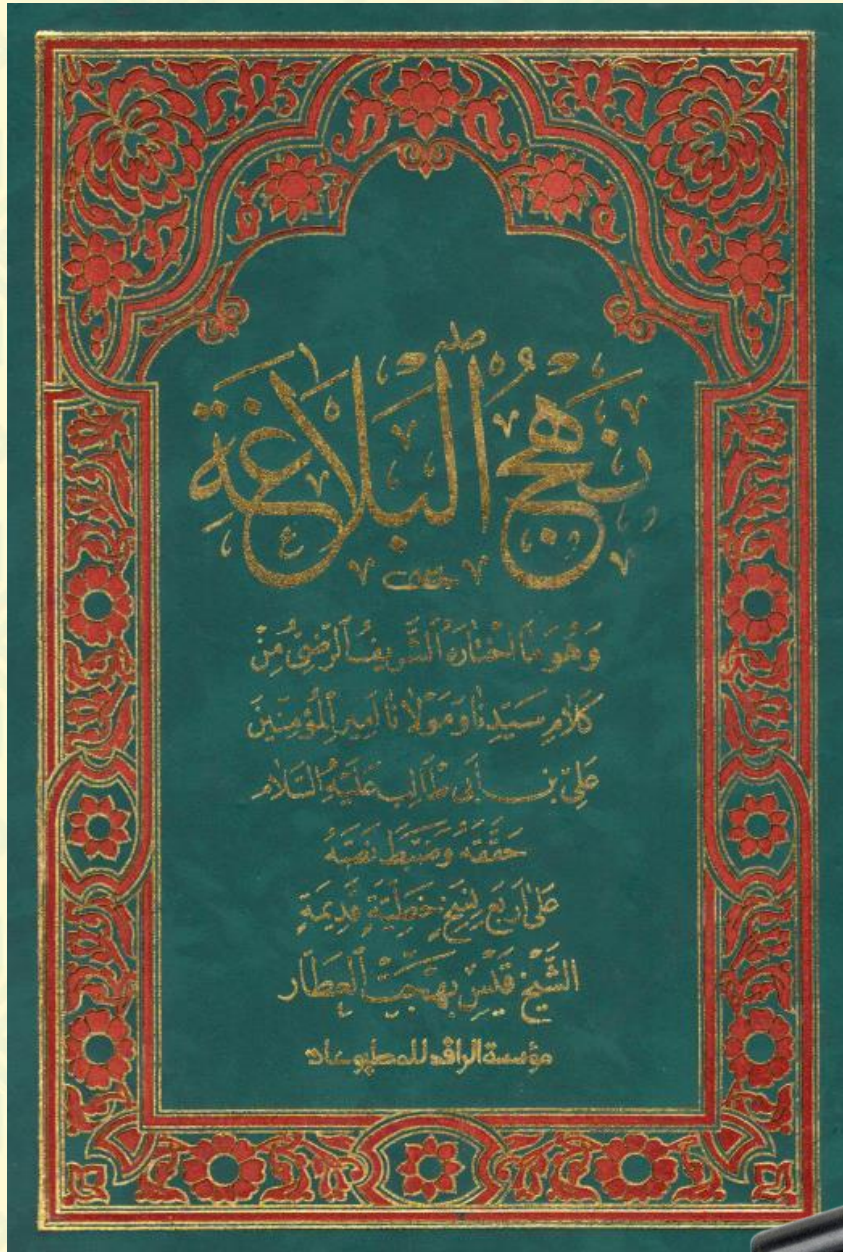 نَهْجُ الْبَلَاغَةِ
وَهُوَ مَا اخْتَارَهُ الشَّرِيفُ الرَّضِيُّ مِنْ
كَلَامِ سَيِّدِنَا وَمَوْلَانَا أَمِيرِ الْمُؤْمِنِينَ
عَلِيِّ بْنِ أَبِي طَالِبٍ عَلَيْهِ السَّلَامُ
حَقَّقَهُ وَضَبَطَ نَصَّهُ
عَلَى أَرْبَعِ نُسَخٍ خَطِّيَّةٍ قَدِيمَةٍ
الشَّيْخُ قَيْسُ بَهْجَتُ الْعَطَّارُ
مؤسسة الرافد للمطبوعات